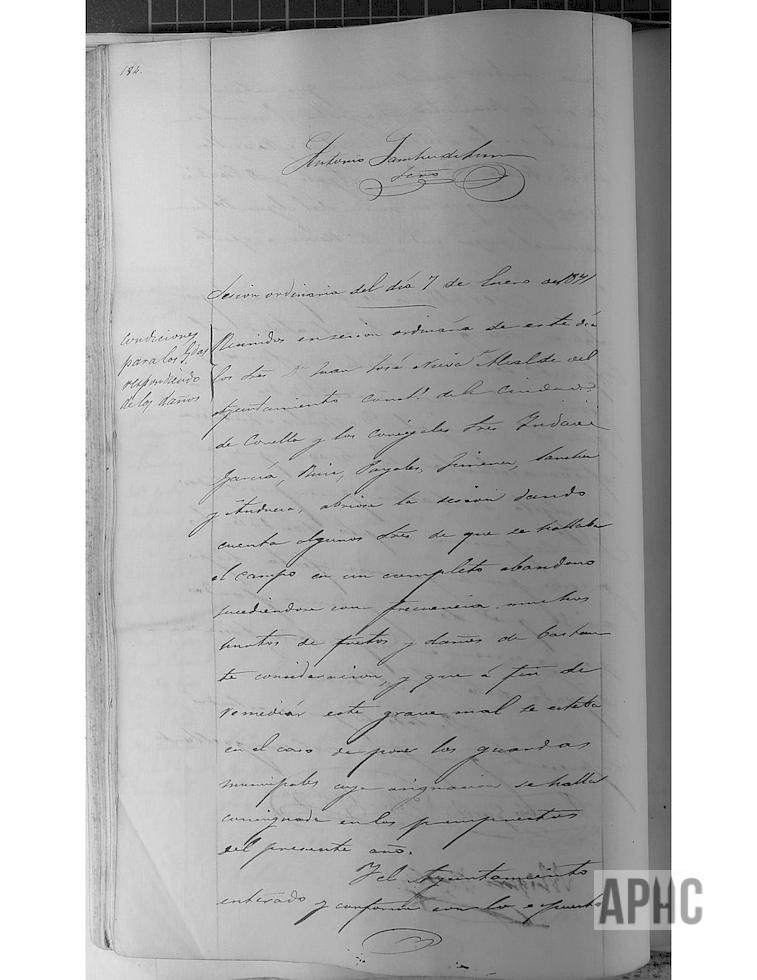 184.
Antonio Sanchez de Luna
Srio
Sesion ordinaria del día 7 de Enero de 1871
Condiciones
para los Gdas
respondiendo
de los daños
Reunidos en sesion ordinária de este día
los Sres Dn Juan José Alcalde del
Ayuntamiento conal. de la Ciudad
de Corella y los concejales Sres
García, Ruiz, Jimenez, Sanchez
y Andueza, abriose la sesion dando
cuenta algunos Sres de que se hallaba
el campo en un completo abandono
sucediendose con frecuencia muchos
hurtos de frutos y daños de bastan
te consideracion, y que á fin de
remediár este grave mal se estaba
en el caso de poner los guardas
municipales cuya asignacion se halla
consignada en los presupuestos
del presente año.
Y el Ayuntamiento
enterado y conforme con lo espuesto
APHC